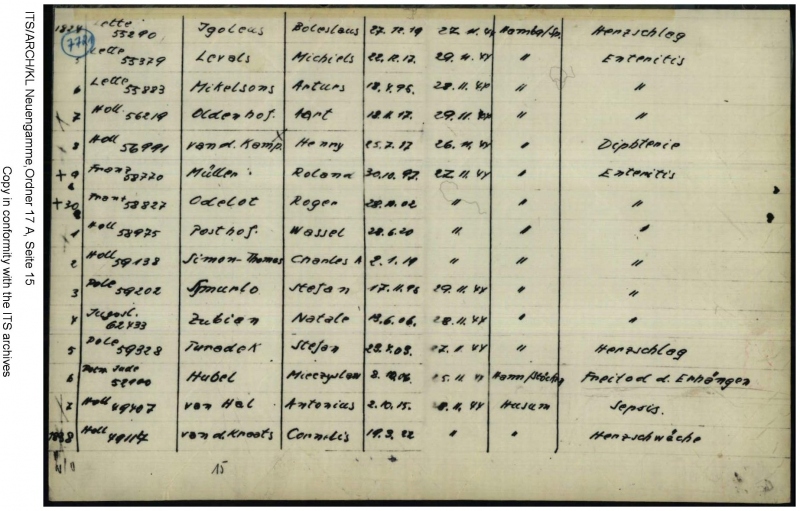 ITS/ARCH/KL Neuengamme, Ordner 17 A, Seite 15
Copy in conformity with the ITS archives
1824 Lette 55290 Igoleus Boleslaus 27.12.19 27.11.44 Hamburg Herzschlag
5 Lette 55379 Levals Michiels 22.12.17. 29.11.44 " Enteritis
6 Lette 55883 Mikelsons Arturs 18.4.96. 28.11.44 " "
7 Holl. 56219 Oldenhof. Aart 18.11.17. 29.11.44 " "
8 Holl 56991 van d. Kamp. Henny 25.7.17 26.11.44 " Diphterie
+ 9 Franz 58770 Müller Roland 30.10.97. 27.11.44 " Enteritis
+ 30 Franz 58827 Odelot Roger 28.11.02 " " "
1 Holl 58975 Posthof. Wassel 28.6.20 " " "
2 Holl 59138 Simon-Thomas Charles A 2.1.19 " " "
3 Pole 59202 Smurlo Stefan 17.11.96 29.11.44 " "
4 Jugosl. 62433 Zubian Natale 19.6.06. 28.11.44 " "
5 Pole 59328 Turadek Stefan 27.11.44 " Herzschlag
6 Jude 52900 Hubel Mieczyslaw Freitod d. Erhängen
7 Holl 49407 van Hal Antonius 2.10.15. Husum Sepsis.
1838 Holl van d. Kraats Cornelis 19.3.22 " " Herzschwäche
15